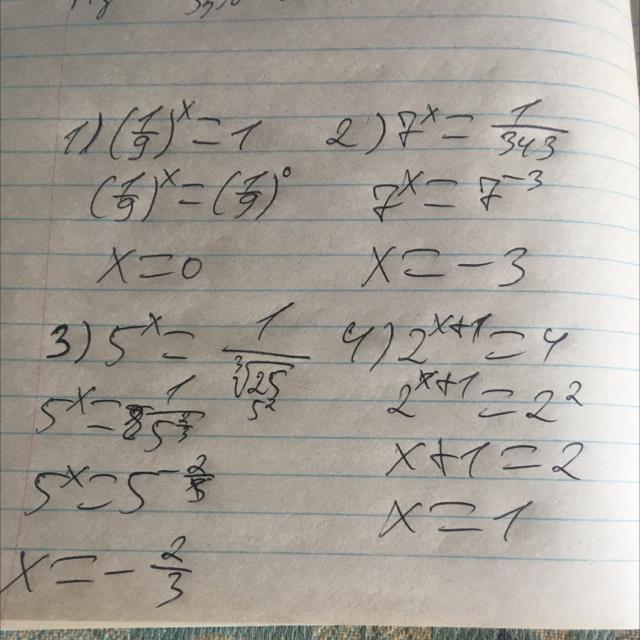 1) (1/9)^x = 1
(1/9)^x = (1/9)^0
x = 0
2) 7^x = 1/343
7^x = 7^-3
x = -3
3) 5^x = 1/∛25
5²
5^x = 1/5^(2/3)
5^x = 5^(-2/3)
x = -2/3
4) 2^(x+1) = 4
2^(x+1) = 2^2
x+1 = 2
x = 1